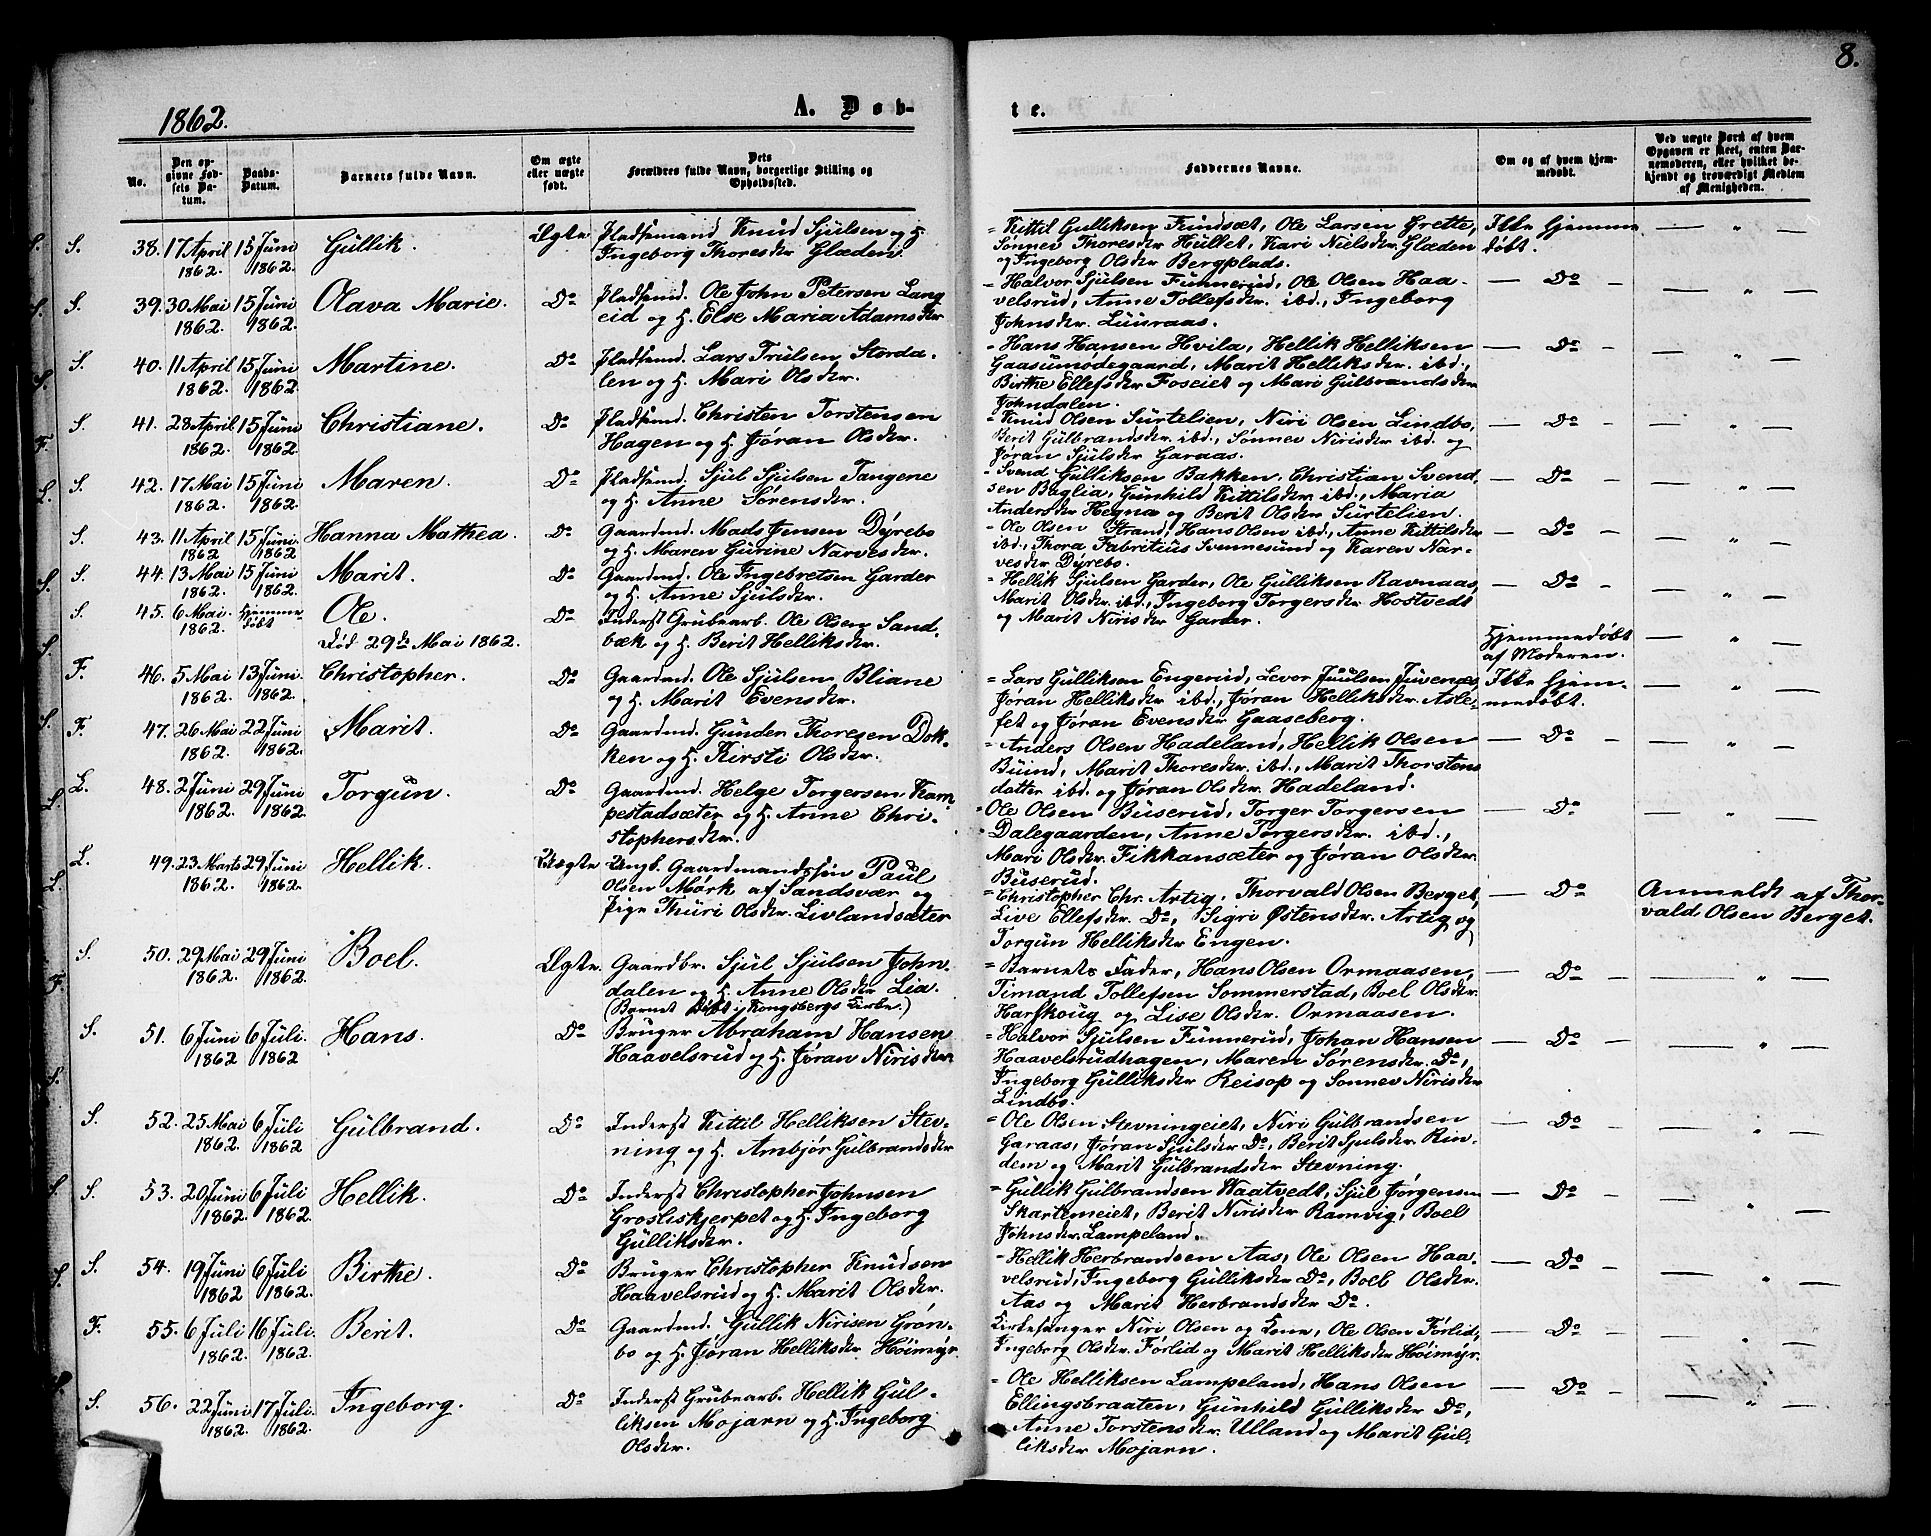 8.
1862.
A. Døb-
te.
No.
Den op-
givne Fød-
sels Da-
tum.
Daabs-
Datum.
Barnets fulde Navn.
Om ægte
eller uægte
født.
Dets
Forældres fulde Navn, borgerlige Stilling og
Opholdssted.
Faddernes Navne.
Om og af hvem hjem-
medøbt.
Ved uægte Børn af hvem
Opgaven er skeet, enten Bar-
nemoderen, eller hvilket be-
kjendt og troværdigt Medlem
af Menigheden.
S. 38. 17 April 1862. 15 Juni 1862. Gullik. Ægte Pladsemand Knud Sjulsen og H.
Ingeborg Thoresdtr Glæden.
= Kittil Gulliksen Fundsæt, Ole Larsen Grette,
Sønnev Thoresdtr Hullet, Kari Nielsdtr. Glæden
og Ingeborg Olsdtr Bergplads.
Ikke Hjemme
døbt.
— " —
S. 39. 30 Mai 1862. 15 Juni 1862. Olava Marie. Do Pladsemd. Ole John Petersen Lang
eid og H. Else Maria Adamsdtr
= Halvor Sjulsen Funnerud, Ole Olsen Haa-
velsrud, Anne Tollefsdtr. ibd., Ingeborg
Johnsdtr. Luuraas.
— Do —
— " —
S. 40. 11 April 1862. 15 Juni 1862. Martine. Do Pladsemd. Lars Trulsen Storda-
len og H. Mari Olsdtr.
= Hans Hansen Hvila, Hellik Helliksen
Gaasumødegaard, Marit Helliksdtr. ibd.,
Birthe Ellefsdtr Foseiet og Mari Gulbrandsdtr
Johndalen.
— Do —
— " —
S. 41. 28 April 1862. 15 Juni 1862. Christiane. Do Pladsemd. Christen Torstensen
Hagen og H. Jøran Olsdtr.
= Knud Olsen Surtelien, Niri Olsen Lindbo,
Berit Gulbrandsdtr. ibd., Sønnev Nirisdtr ibd. og
Jøran Sjulsdtr Garaas.
— Do —
— " —
S. 42. 17 Mai 1862. 15 Juni 1862. Maren. Do Pladsemd. Sjul Sjulsen Tangene
og H. Anne Sørensdtr.
= Svend Gulliksen Bakken, Christian Svend
sen Baglia, Gunhild Kittilsdtr. ibd., Maria
Andersdtr Hegna og Berit Olsdtr Surtelien.
— Do —
— " —
S. 43. 11 April 1862 15 Juni. 1862 Hanna Mathea. Do Gaardmd. Mads Jensen Dyrebo
og H. Maren Gurine Narvesdtr.
= Ole Olsen Strand, Hans Olsen ibd., Anne Kittilsdtr
ibd., Thora Fabritius Svennesund og Karen Nar-
vesdtr Dyrebo.
— Do —
— " —
S. 44. 13 Mai 1862. 15 Juni 1862. Marit. Do Gaardmd. Ole Ingebretsen Garder
og H. Anne Sjulsdtr.
= Hellik Sjulsen Garder, Ole Gulliksen Ravnaas,
Marit Olsdtr. ibd., Ingeborg Torgersdtr Hostvedt
og Marit Nirisdtr Garder.
— Do —
— " —
S. 45. 6 Mai. 1862. Hjemme-
døbt Ole.
Død 29de Mai 1862. Do Inderst Grubearb. Ole Olsen Sand-
bæk og H. Berit Helliksdtr.
Hjemmedøbt
af Moderen.
— " —
F. 46. 5 Mai 1862. 13 Juni 1862. Christopher. Do Gaardmd. Ole Sjulsen Bliane
og H. Marit Evensdtr.
= Lars Gulliksen Engerud, Levor Juulsen Juvenæs,
Jøran Helliksdtr ibd., Jøran Helliksdtr. Asle-
fet og Jøran Evensdtr Gaaseberg.
Ikke Hjem-
medøbt.
— " —
F. 47. 26 Mai 1862. 22 Juni 1862. Marit. Do Gaardmd. Gunder Thoresen Dok-
ken og H. Kirsti Olsdtr.
= Anders Olsen Hadeland, Hellik Olsen
Buind, Marit Thoresdtr. ibd., Marit Thorstens
datter ibd. og Jøran Olsdtr Hadeland.
— Do —
— " —
L. 48. 2 Juni 1862. 29 Juni 1862. Torgun. Do Gaardmd. Helge Torgersen Kam
pestadsæter og H. Anne Chri-
stophersdtr.
= Ole Olsen Buserud, Torger Torgersen
Dalegaarden, Anne Torgersdtr. ibd.,
Mari Olsdtr. Fikkansæter og Jøran Olsdtr.
Buserud.
— Do —
— " —
L. 49. 23 Marts 1862. 29 Juni 1862. Hellik. Uægte Ungk. Gaardmandssøn Paul
Olsen Mørk af Sandsvær og
Pige Thuri Olsdtr. Livlandsæter
= Christopher Chr. Artig, Thorvald Olsen Berget,
Live Ellefsdtr. Do, Sigri Østensdtr. Artig og
Torgun Helliksdtr Engen.
— Do —
Anmeldt af Thor-
vald Olsen Berget.
S. 50. 29 Mai 1862. 29 Juni 1862. Boel. Ægte. Gaardbr. Sjul Sjulsen John-
dalen og H. Anne Olsdtr Lia.
(Barnet Døbt i Kongsbergs Kirke.)
= Barnets Fader, Hans Olsen Ormaasen,
Timand Tollefsen Sommerstad, Boel Olsdtr.
Harskoug og Lise Olsdtr. Ormaasen.
— Do —
— " —
S. 51. 6 Juni 1862 6 Juli. 1862 Hans. Do Bruger Abraham Hansen
Haavelsrud og H. Jøran Nirisdtr.
= Halvor Sjulsen Funnerud, Johan Hansen
Haavelsrudhagen, Maren Sørensdtr. Do,
Ingeborg Gulliksdtr Reisop og Sønnev Nirisdtr
Lindbo.
— Do —
— " —
S. 52. 25 Mai 1862. 6 Juli 1862 Gulbrand. Do Inderst Kittil Helliksen Stev-
ning og H. Ambjør Gulbrandsdtr
= Ole Olsen Stevningeiet, Niri Gulbrandsen
Garaas, Jøran Sjulsdtr Do, Berit Sjulsdtr. Rin-
dem og Marit Gulbrandsdtr Stevning.
— Do —
— " —
S. 53. 20 Juni 1862. 6 Juli 1862. Hellik. Do Inderst Christopher Johnsen
Grosliskjerpet og H. Ingeborg
Gulliksdtr.
= Gullik Gulbrandsen Waatvedt, Sjul Jørgensen
Skartemeiet, Berit Nirisdtr Ramvig, Boel
Johnsdtr. Lampeland.
— Do —
— " —
S. 54. 19 Juni 1862 6 Juli 1862. Birthe. Do Bruger Christopher Knudsen
Haavelsrud og H. Marit Olsdtr.
= Hellik Herbrandsen Aas, Ole Olsen Haa-
velsrud, Ingeborg Gulliksdtr Do, Boel Olsdtr.
Aas og Marit Herbrandsdtr Do.
— Do —
— " —
F. 55. 6 Juli 1862. 16 Juli. 1862. Berit. Do Gaardmd. Gullik Nirisen Grøn-
bo og H. Jøran Helliksdtr. Høimyr.
Kirkesanger Niri Olsen og Kone, Ole Olsen Førlid,
Ingeborg Olsdtr. Førlid og Marit Helliksdtr Høimyr.
— Do —
— " —
S. 56. 22 Juni 1862. 17 Juli. 1862. Ingeborg. Do Inderst Grubearb. Hellik Gul-
liksen Mojarn og H. Ingeborg
Olsdtr.
= Ole Helliksen Lampeland, Hans Olsen
Ellingsbraaten, Gunhild Gulliksdtr Do,
Anne Torstensdtr. Ulland og Marit Gul-
liksdtr Mojarn.
— Do —
— " —